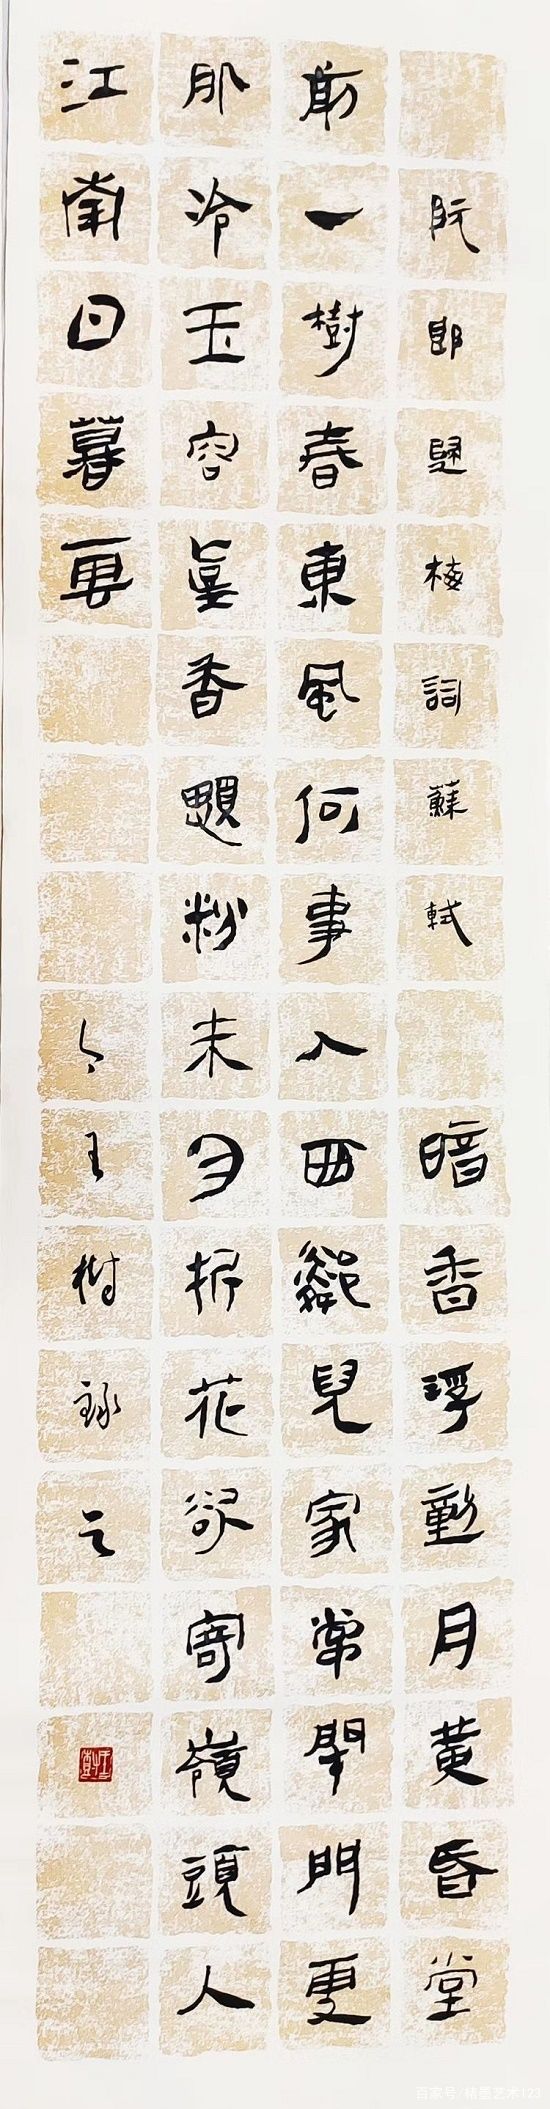 阮郎歸 梅詞 蘇軾 暗香浮動月黃昏堂
前一樹春東風何事入西鄰兒家常閉門雪
肌冷玉容真香顋粉未勻折花欲寄嶺頭人
江南日暮雲 王樹錄之
百家号/精墨艺术123